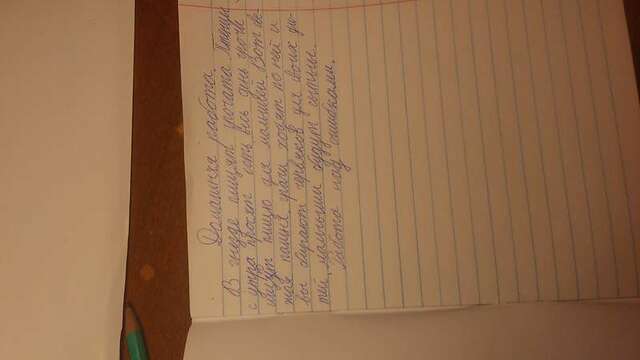 Домашняя работа.
В гнезде пищят грочата Птенцы
с утра просят есть весь день грочи
ищут пищю для малышей Вот све
жая пашня грачи ходят по ней и
вы бирают червяков для своих ди
тей, малыши будут сытны.
Работа над ошибками.